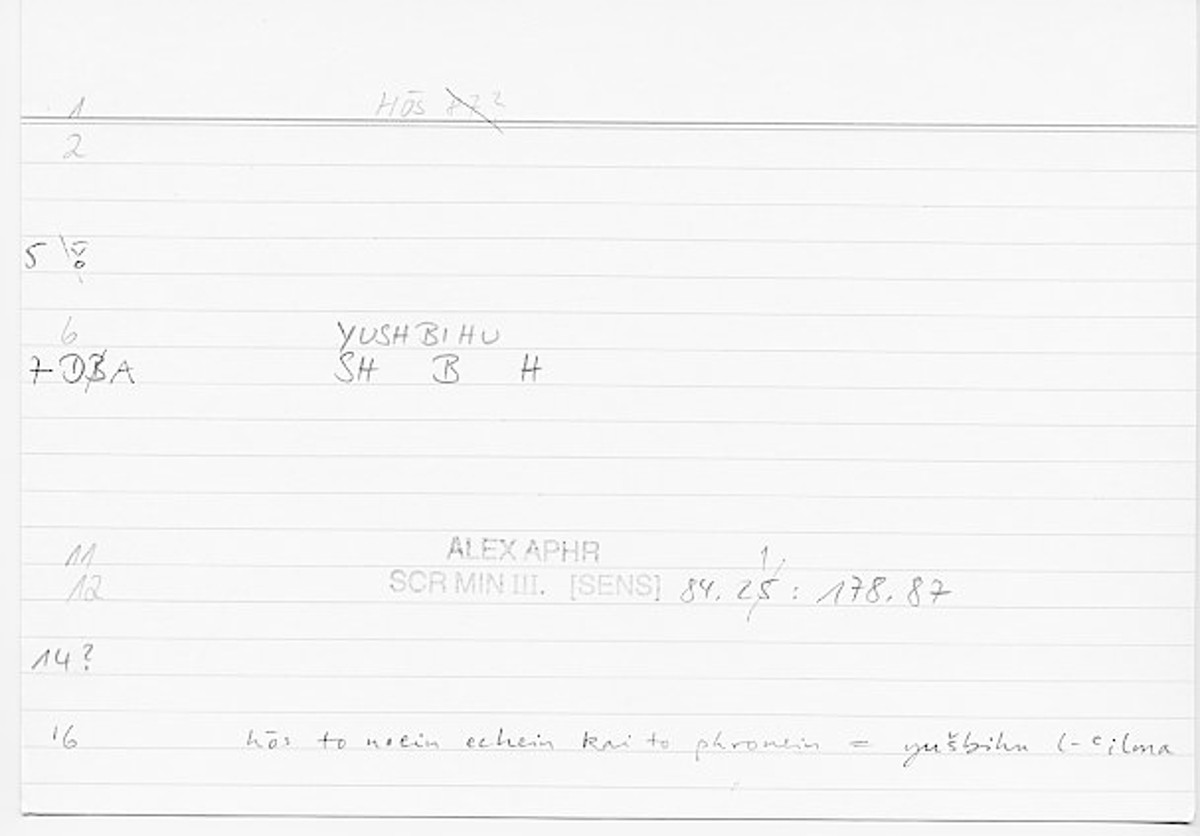 1 HŌS
2
5
6 YUSHBIHU
7 DBA SH B H
11 ALEX APHR
12 SCR MIN III. [SENS] 84. 25 : 178. 87
14?
16 hōs to noein echein kai to phronein = yušbihu l-ʿilma